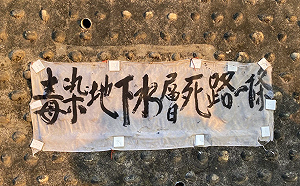 毒染地下水層死路一條